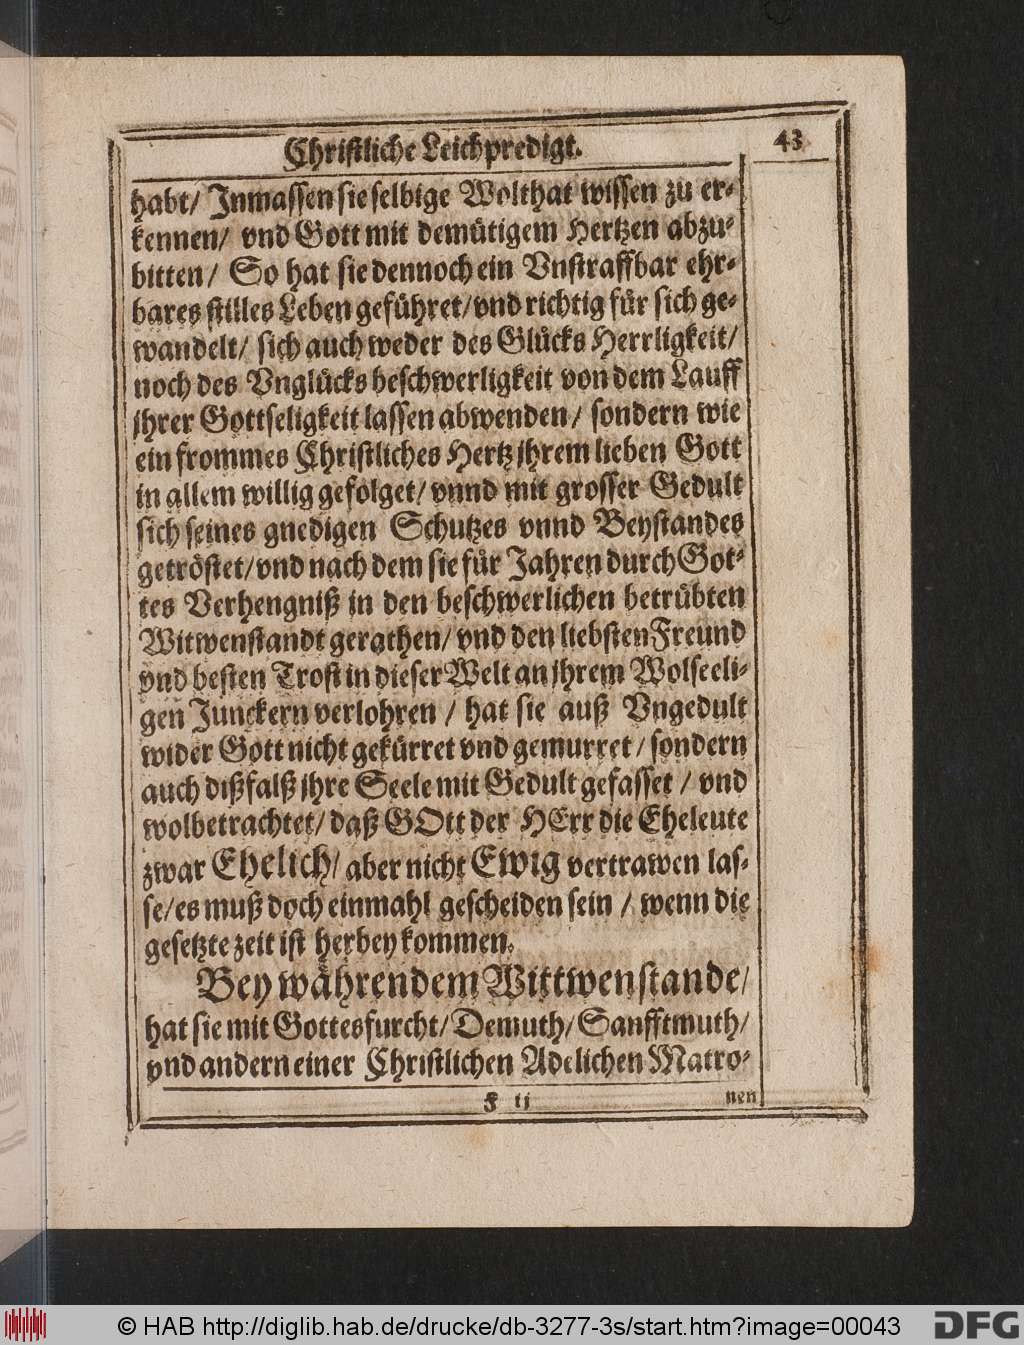 Christliche Leichpredigt. 43
habt/ Inmassen sie selbige Wolthat wissen zu er-
kennen/ vnd Gott mit demütigem Hertzen abzu-
bitten/ So hat sie dennoch ein Vnstraffbar ehr-
bares stilles Leben geführet/ vnd richtig für sich ge-
wandelt/ sich auch weder des Glücks Herrligkeit/
noch des Vnglücks beschwerligkeit von dem Lauff
jhrer Gottseligkeit lassen abwenden/ sondern wie
ein frommes Christliches Hertz jhrem lieben Gott
in allem willig gefolget/ vnnd mit grosser Gedult
sich seines gnedigen Schutzes vnnd Beystandes
getröstet/ vnd nach dem sie für Jahren durch Got-
tes Verhengniß in den beschwerlichen betrübten
Witwenstandt gerathen/ vnd den liebsten Freund
vnd besten Trost in dieser Welt an jhrem Wolseeli-
gen Junckern verlohren / hat sie auß Vngedult
wider Gott nicht gekürret vnd gemurret / sondern
auch dißfalß jhre Seele mit Gedult gefasset / vnd
wolbetrachtet/ daß GOtt der HErr die Eheleute
zwar Ehelich/ aber nicht Ewig vertrawen las-
se/ es muß doch einmahl gescheiden sein / wenn die
gesetzte zeit ist herbey kommen.
Bey währendem Wittwenstande/
hat sie mit Gottesfurcht/ Demuth/ Sanfftmuth/
vnd andern einer Christlichen Adelichen Matro-
F ij nen
© HAB http://diglib.hab.de/drucke/db-3277-3s/start.htm?image=00043 DFG